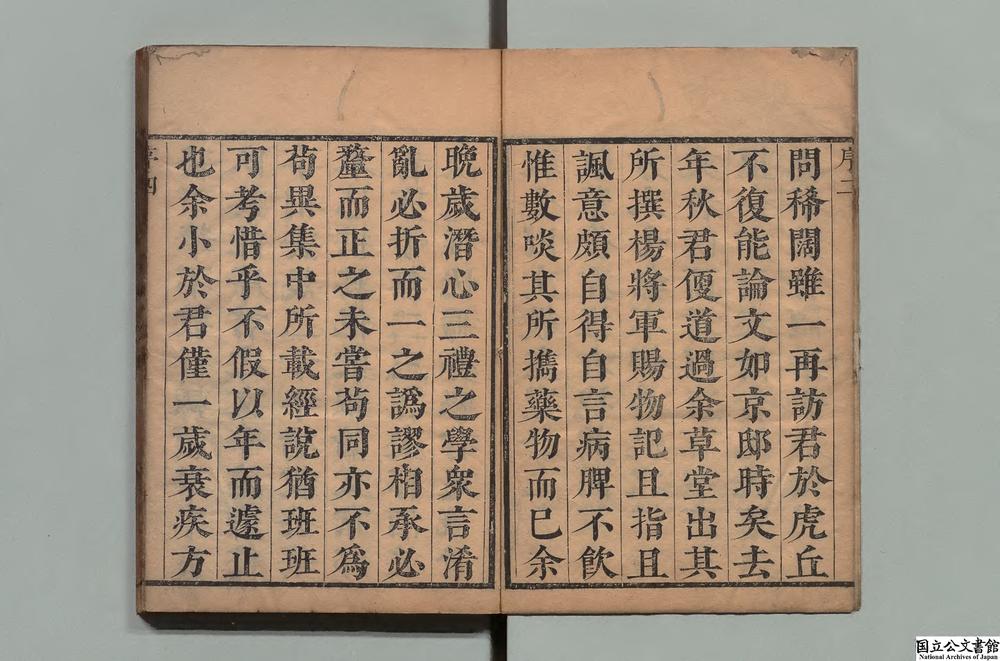 問稀闊雖一再訪君於虎丘
不復能論文如京邸時矣去
年秋君便道過余草堂出其
所撰楊將軍賜物記且指且
諷意頗自得自言病脾不飲
惟數啖其所攜藥物而已余
晩歲潛心三禮之學衆言淆
亂必折而一之譌謬相承必
釐而正之未嘗茍同亦不爲
茍異集中所載經說猶班班
可考惜乎不假以年而遽止
也余小於君僅一歲衰疾方
国立公文書館
National Archives of Japan